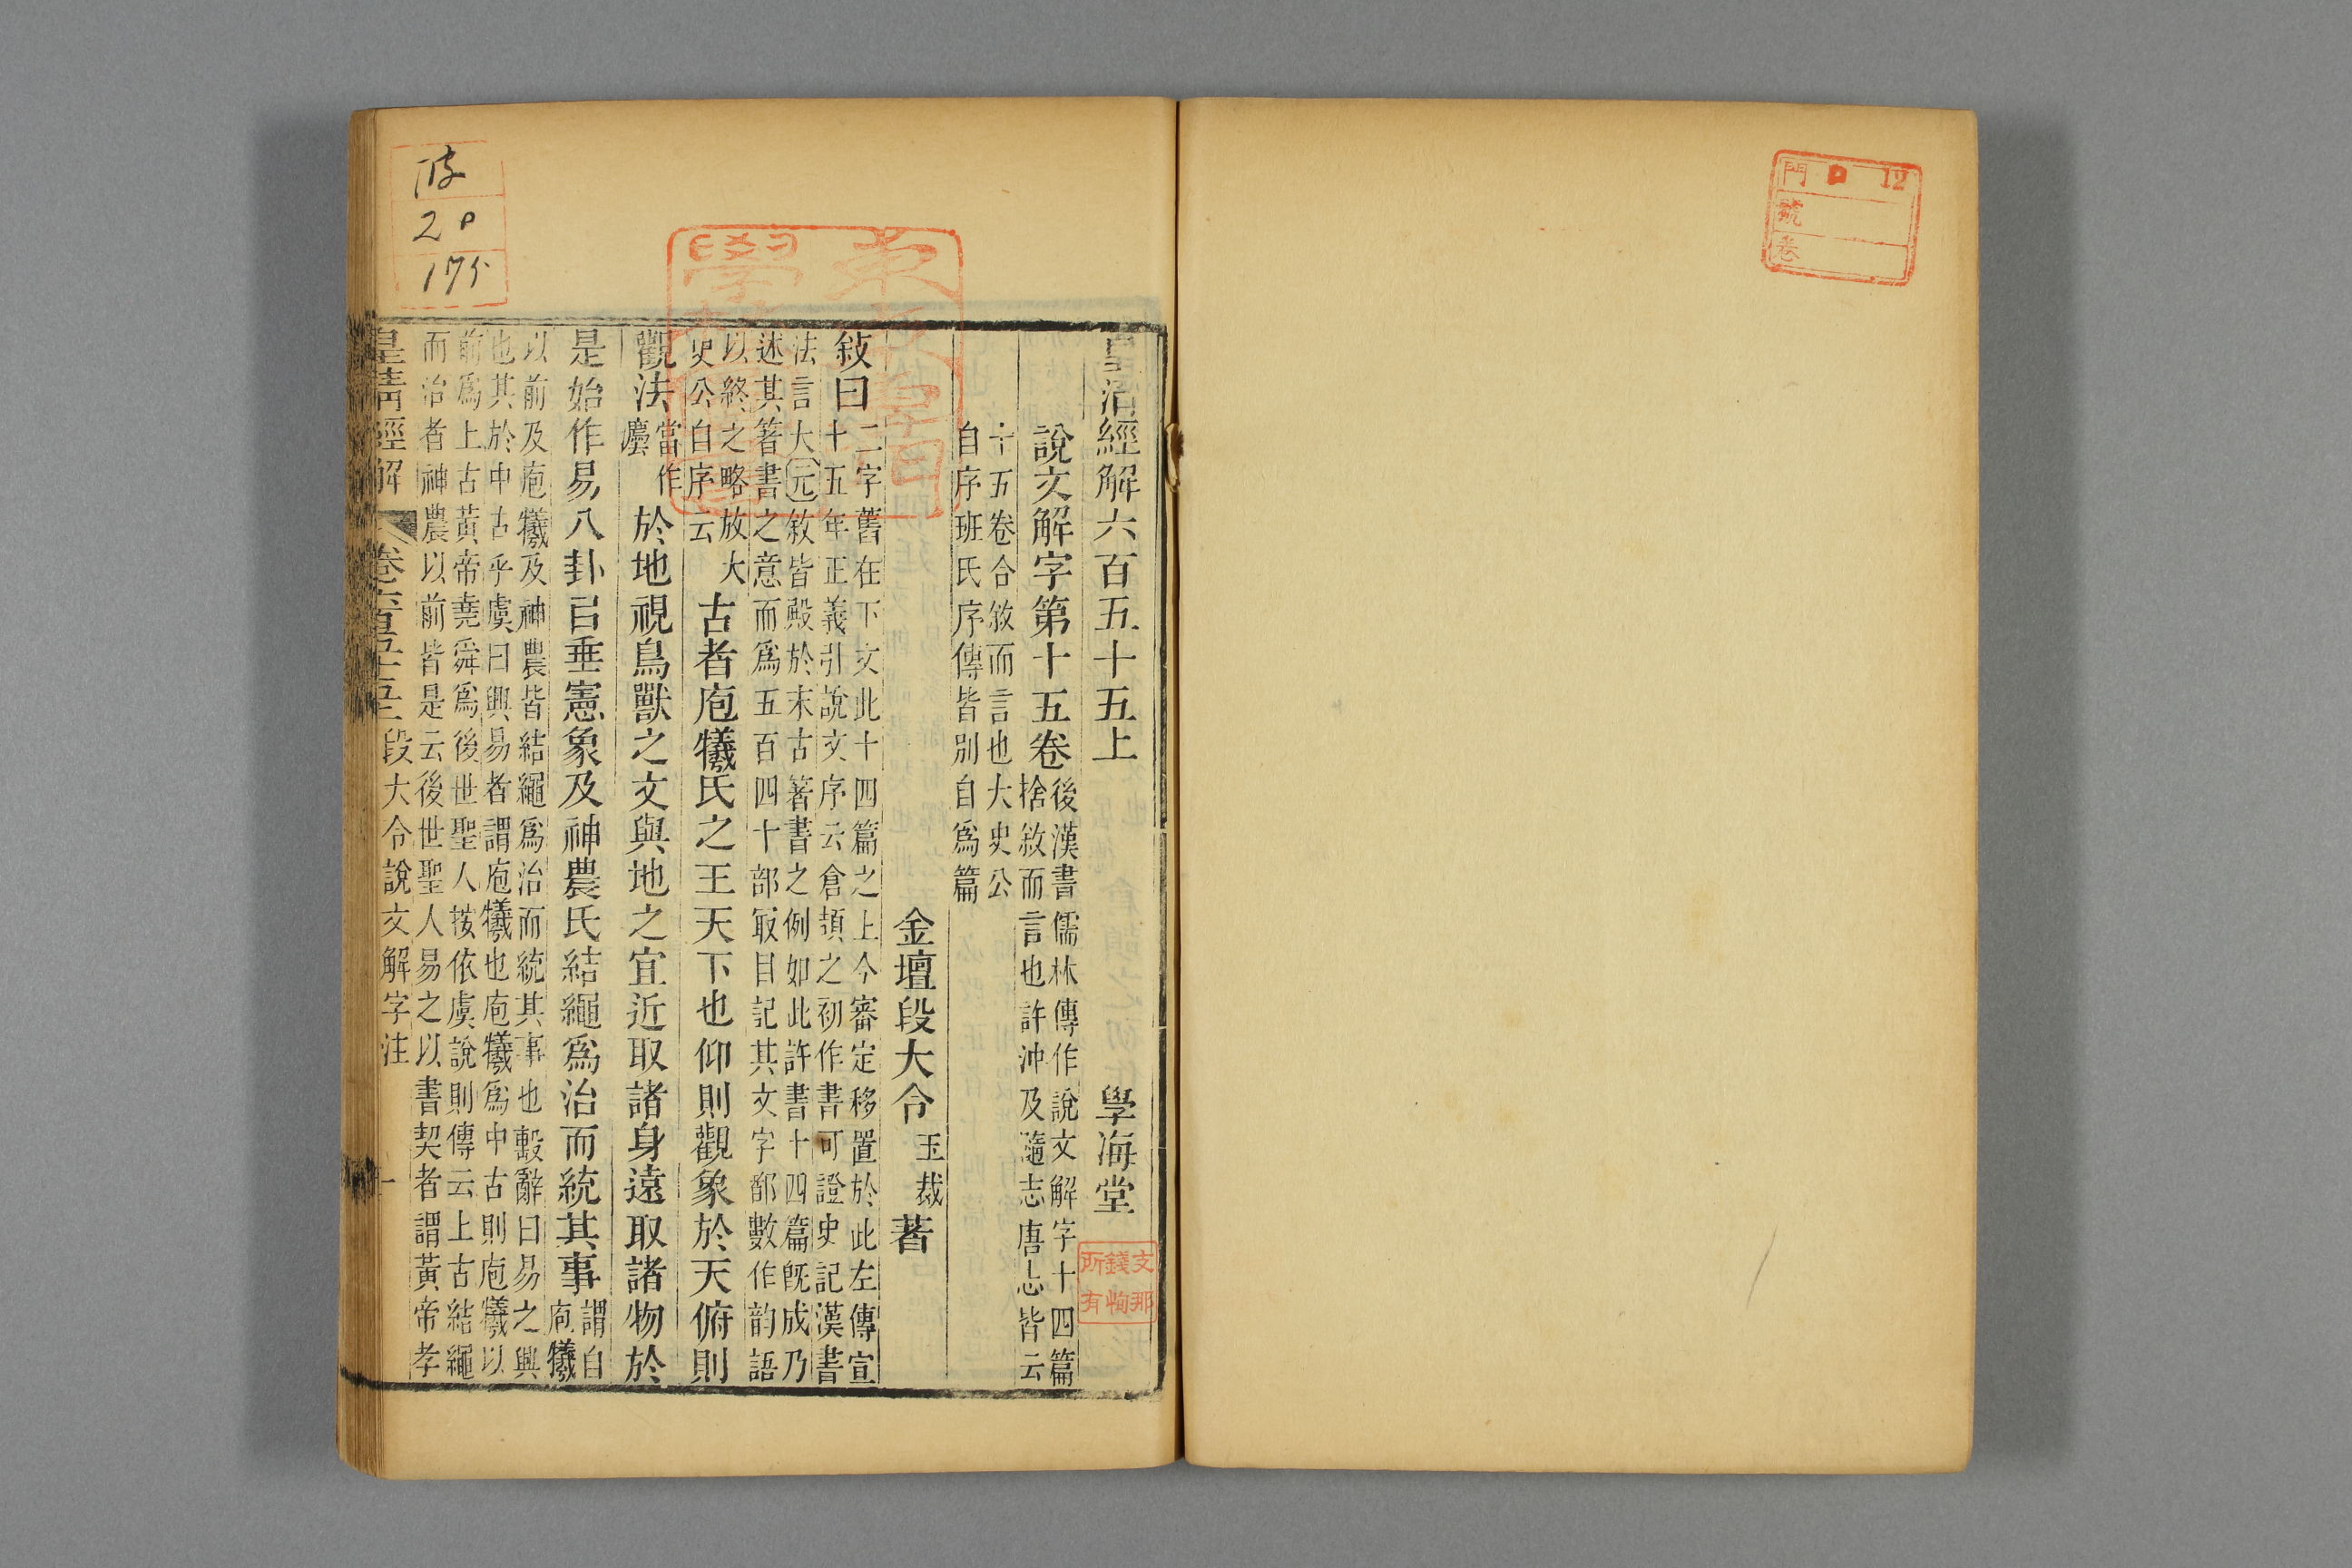 門 口 12
號
卷
皇清經解六百五十五上 學海堂
支那
錢恂
所有
說文解字第十五卷
後漢書儒林傳作說文解字十四篇
捨敘而言也許沖及隨志唐志皆云
十五卷合敘而言也大史公
自序班氏序傳皆別自爲篇
金壇段大令玉裁著
敍曰
二字舊在下文此十四篇之上今審定移置於此左傳宣
十五年正義引說文序云倉頡之初作書可證史記漢書
法言大元敘皆殿於末古著書之例如此許書十四篇既成乃
述其著書之意而爲五百四十部冣目記其文字都數作韵語
以終之略放大
史公自序云
古者庖犧氏之王天下也仰則觀象於天俯則
觀法
當作
灋
於地視鳥獸之文與地之宜近取諸身遠取諸物於
是始作易八卦㠯垂憲象及神農氏結繩爲治而統其事
謂自
庖犧
以前及庖犧及神農皆結繩爲治而統其事也毄辭曰易之興
也其於中古乎虞曰興易者謂庖犧也庖犧爲中古則庖犧以
前爲上古黃帝堯舜爲後世聖人按依虞說則傳云上古結繩
而治者神農以前皆是云後世聖人易之以書契者謂黃帝孝
皇清經解 卷六百五十五上 段大令說文解字注 一
20
175